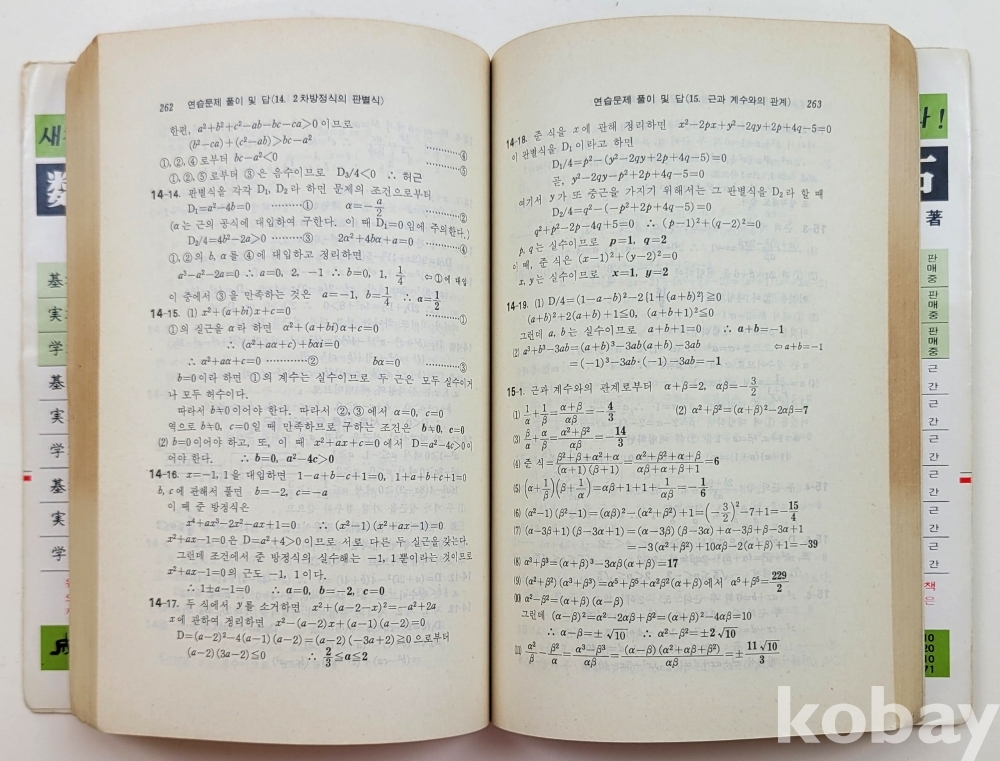 262 연습문제 풀이 및 답(14. 2차방정식의 판별식)
한편, a²+b²+c²−ab−bc−ca>0 이므로
(b²−ca)+(c²−ab)>bc−a²
①,②,④로부터 bc−a²<0 …………④
①,②,⑤로부터 ③은 음수이므로 D₃/4<0 ∴ 허근 …………⑤
14-14. 판별식을 각각 D₁, D₂라 하면 문제의 조건으로부터
D₁=a²−4b=0 ………① α=−a/2 …………②
(α는 근의 공식에 대입하여 구한다. 이 때 D₁=0임에 주의한다.)
D₂/4=4b²−2a>0 ………③ 2α²+4bα+a=0 …………④
①,②의 b, α를 ④에 대입하고 정리하면
a³−a²−2a=0 ∴ a=0, 2, −1 ∴ b=0, 1, 1/4 ⇦①에 대입
이 중에서 ③을 만족하는 것은 a=−1, b=1/4 ∴ α=1/2
14-15. (1) x²+(a+bi)x+c=0 …………①
①의 실근을 α라 하면 α²+(a+bi)α+c=0
∴ (α²+aα+c)+bαi=0
∴ α²+aα+c=0 …………② bα=0 …………③
b=0이라 하면 ①의 계수는 실수이므로 두 근은 모두 실수이거
나 모두 허수이다.
따라서 b≠0이어야 한다. 따라서 ②,③에서 α=0, c=0
역으로 b≠0, c=0일 때 만족하므로 구하는 조건은 b≠0, c=0
(2) b=0이어야 하고, 또, 이 때 x²+ax+c=0에서 D=a²−4c>0이
어야 한다. ∴ b=0, a²−4c>0
14-16. x=−1, 1을 대입하면 1−a+b−c+1=0, 1+a+b+c+1=0
b, c에 관해서 풀면 b=−2, c=−a
이 때 준 방정식은
x⁴+ax³−2x²−ax+1=0 ∴ (x²−1)(x²+ax−1)=0
x²+ax−1=0은 D=a²+4>0이므로 서로 다른 두 실근을 갖는다.
그런데 조건에서 준 방정식의 실수해는 −1, 1뿐이라는 것이므로
x²+ax−1=0의 근도 −1, 1이다.
∴ 1±a−1=0 ∴ a=0, b=−2, c=0
14-17. 두 식에서 y를 소거하면 x²+(a−2−x)²=−a²+2a
x에 관하여 정리하면 x²−(a−2)x+(a−1)(a−2)=0
D=(a−2)²−4(a−1)(a−2)=(a−2)(−3a+2)≧0으로부터
(a−2)(3a−2)≦0 ∴ 2/3≦a≦2
연습문제 풀이 및 답(15. 근과 계수와의 관계) 263
14-18. 준 식을 x에 관해 정리하면 x²−2px+y²−2qy+2p+4q−5=0
이 판별식을 D₁이라고 하면
D₁/4=p²−(y²−2qy+2p+4q−5)=0
곧, y²−2qy−p²+2p+4q−5=0
여기서 y가 또 중근을 가지기 위해서는 그 판별식을 D₂라 할 때
D₂/4=q²−(−p²+2p+4q−5)=0
q²+p²−2p−4q+5=0 ∴ (p−1)²+(q−2)²=0
p, q는 실수이므로 p=1, q=2
이 때, 준 식은 (x−1)²+(y−2)²=0
x, y는 실수이므로 x=1, y=2
14-19. (1) D/4=(1−a−b)²−2{1+(a+b)²}≧0
(a+b)²+2(a+b)+1≦0, (a+b+1)²≦0
그런데 a, b는 실수이므로 a+b+1=0 ∴ a+b=−1
(2) a³+b³−3ab=(a+b)³−3ab(a+b)−3ab ⇦a+b=−1
=(−1)³−3ab·(−1)−3ab=−1
15-1. 근과 계수와의 관계로부터 α+β=2, αβ=−3/2
(1) 1/α+1/β=(α+β)/αβ=−4/3 (2) α²+β²=(α+β)²−2αβ=7
(3) β/α+α/β=(α²+β²)/αβ=−14/3
(4) 준 식=(β²+β+α²+α)/((α+1)(β+1))=(α²+β²+α+β)/(αβ+α+β+1)=6
(5) (α+1/β)(β+1/α)=αβ+1+1+1/αβ=−1/6
(6) (α²−1)(β²−1)=(αβ)²−(α²+β²)+1=(−3/2)²−7+1=−15/4
(7) (α−3β+1)(β−3α+1)=(α−3β)(β−3α)+α−3β+β−3α+1
=−3(α²+β²)+10αβ−2(α+β)+1=−39
(8) α³+β³=(α+β)³−3αβ(α+β)=17
(9) (α²+β²)(α³+β³)=α⁵+β⁵+α²β²(α+β)에서 α⁵+β⁵=229/2
(10) α²−β²=(α+β)(α−β)
그런데 (α−β)²=α²−2αβ+β²=(α+β)²−4αβ=10
∴ α−β=±√10 ∴ α²−β²=±2√10
(11) α²/β−β²/α=(α³−β³)/αβ=(α−β)(α²+αβ+β²)/αβ=±11√10/3
새
基
実
学
基
実
学
基
実
学
다!
石
著
판매중
판매중
판매중
근간
근간
근간
근간
근간
근간
책은
10
20
10
71
kobay